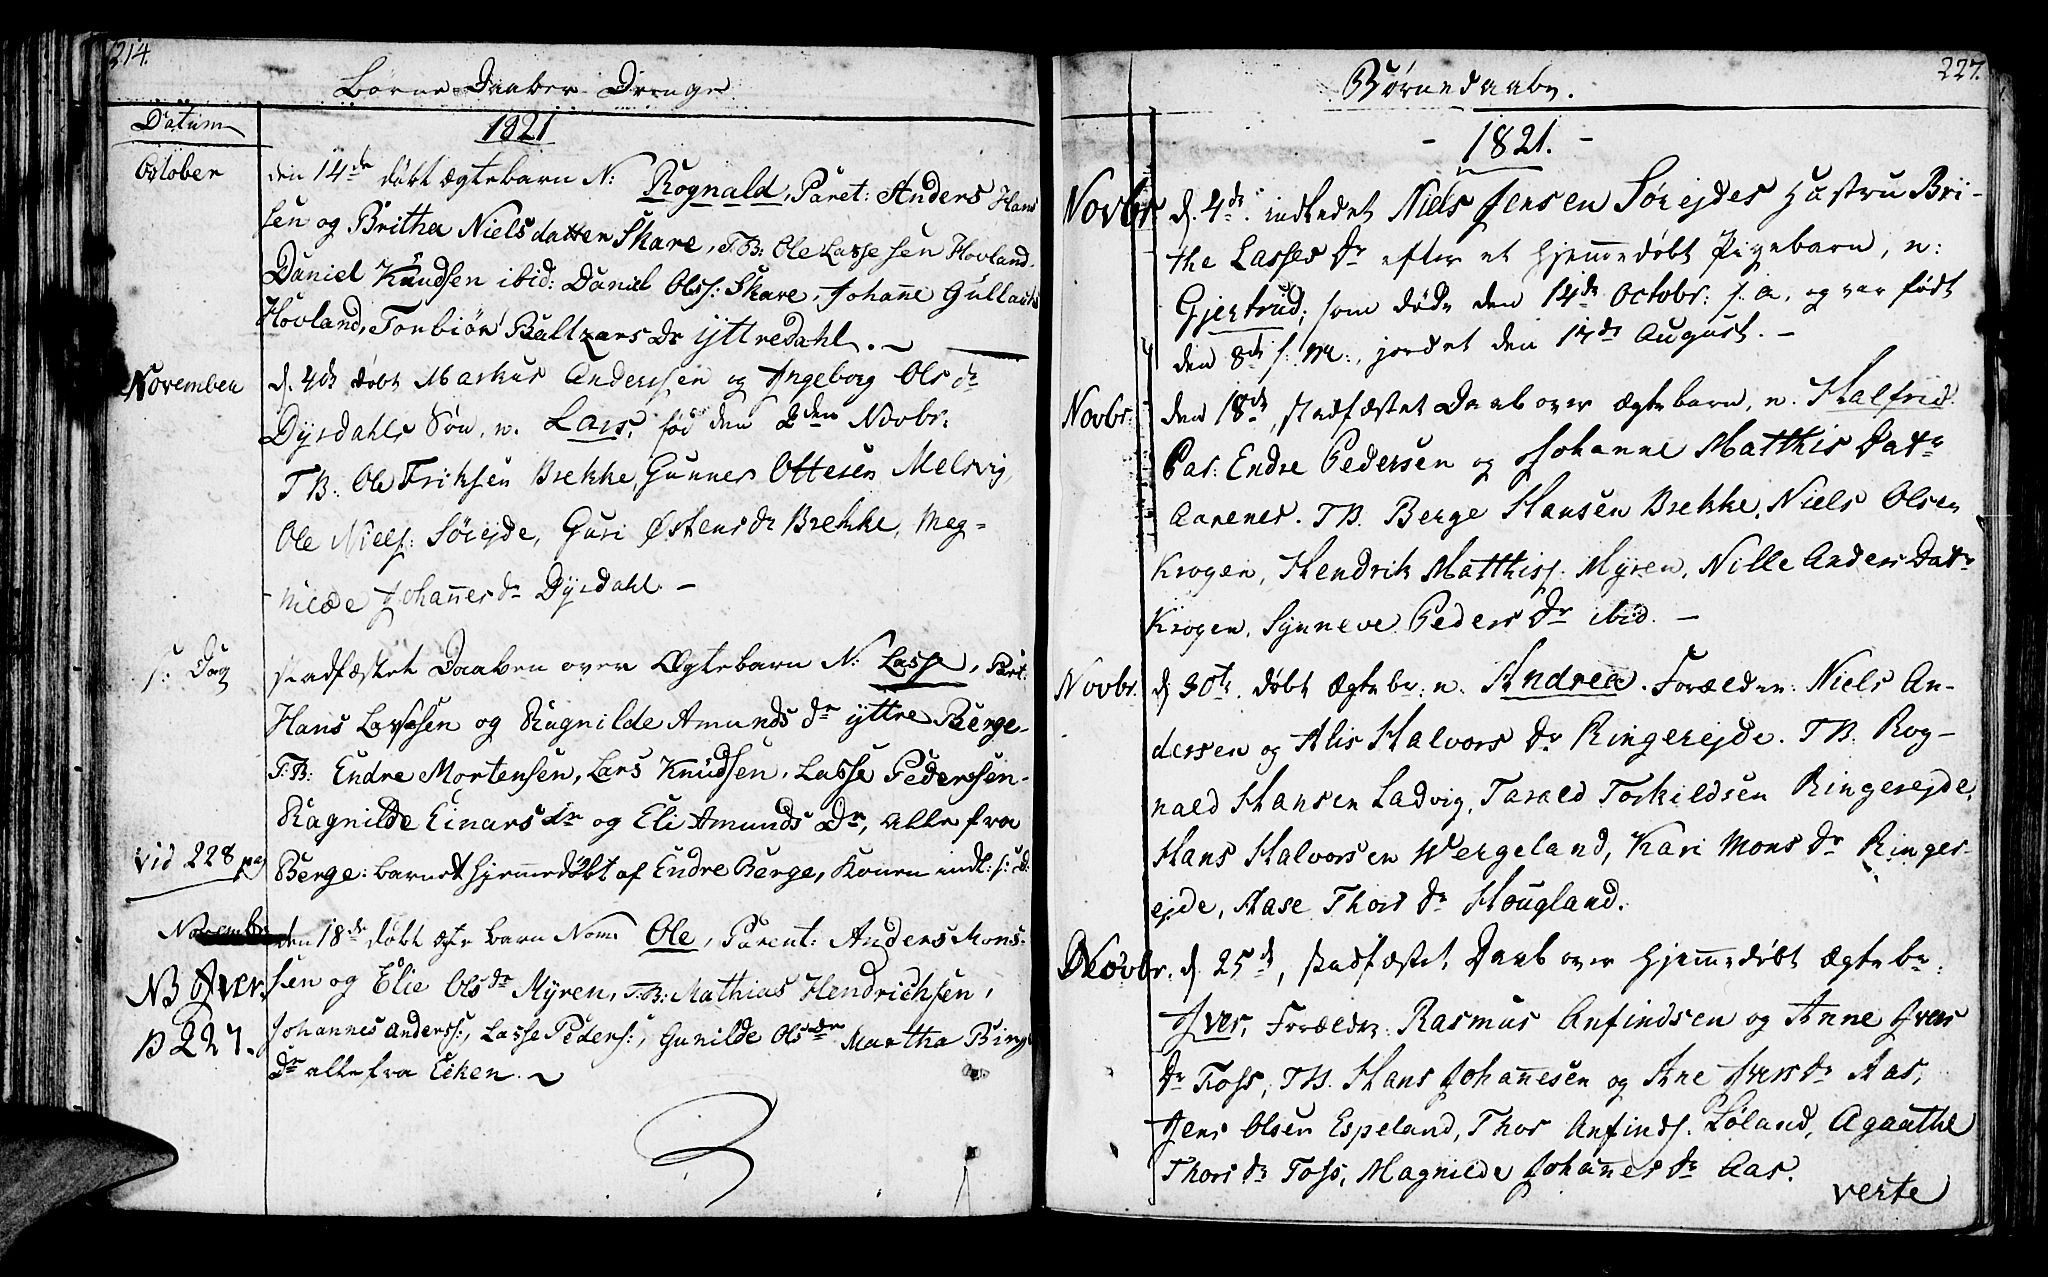 214.
Børne-Daaber Drenge
Datum
1821
October
den 14de døbt Ægtebarn N: Rognald, Paret: Anders Hans
sen og Britha Nielsdatter Skare, T.B: Ole Lassesen Hovland
Daniel Knudsen ibid: Daniel Olss: Skare, Johanne Gullachs
Hovland, Torbiør Baltzars Dr Yttredahl.
November
d. 4de døbt Markus Andersen og Ingeborg Ols dr
Dyrdahls Søn, n. Lars, fød den 2den Novbr:
T.B. Ole Eriksen Brekke, Gunner Ottesen Melsvig,
Ole Niels: Sørejde, Guri Østensdr Brekke, Mag-
nilde Johannes dr Dyrdahl -
s: Dag
stadfæstet Daaben over Ægtebarn N: Lasse, Part:
Hans Lassesen og Ragnilde Amunds dr yttre Berge.
T.B: Endre Mortensen, Lars Knudsen, Lasse Pedersen.
Ragnilde Einars dr og Eli Amunds Dr, alle fra
vid 228 pag
Berge: barnet hjemmedøbt af Endre Berge, Konen indl: s: d:
Novemb:
den 18de døbt ægte barn Nom: Ole, Parent: Anders Mons-
sen og Elie Olsdr Myren, T.B: Mathias Hendrichsen,
NB Iver.
p 227.
Johannes Anderss:, Lasse Peders:, Gunilde Olsdr Martha Birg
Dr alle fra Eiken.
227.
Børnedaabe.
- 1821. -
Novbr.
d. 4de. indledet Niels Jensen Sørejdes Hustru Bri-
the Lasses Dr efter et hjemmedøbt Pigebarn, n:
Gjertrud, som døde den 14de Octobr: s. a. og var født
den 8de s. m:, jordet den 17de August. -
Novbr.
den 18de, stadfæstet Daab over ægte barn, n. Halfrid.
Par: Endre Pedersen og Johanne Matthis Datr
Aarenes. T.B. Berge Hansen Brekke, Niels Olsen
Krogen, Hendrik Matthiss. Myren, Nille Anders Datr
Krogen, Synneve Peders Dr ibid. -
Novbr.
d 30te. døbt Ægte br: n. Andrea. Forælder: Niels An-
dersen og Alis Halvors Dr Ringerejde. T.B. Rog-
nald Hansen Ladvig, Tarald Torkildsen Ringerejde,
Hans Halvorsen Wergeland, Kari Mons Dr Ringer-
ejde, Aase Thors Dr Hougland.
Novbr.
d. 25de, stadfæstet Daab over hjemmedøbt Ægte br.
Iver, Forælder: Rasmus Anfindsen og Anne Ivers
Dr Foss, T.B. Hans Johannesen og Ane Ivers Dr Aas,
Jens Olsen Espeland, Thor Anfinds. Løland, Agaathe
Thors Dr Foss, Magnilde Johannes Dr Aas.
verte